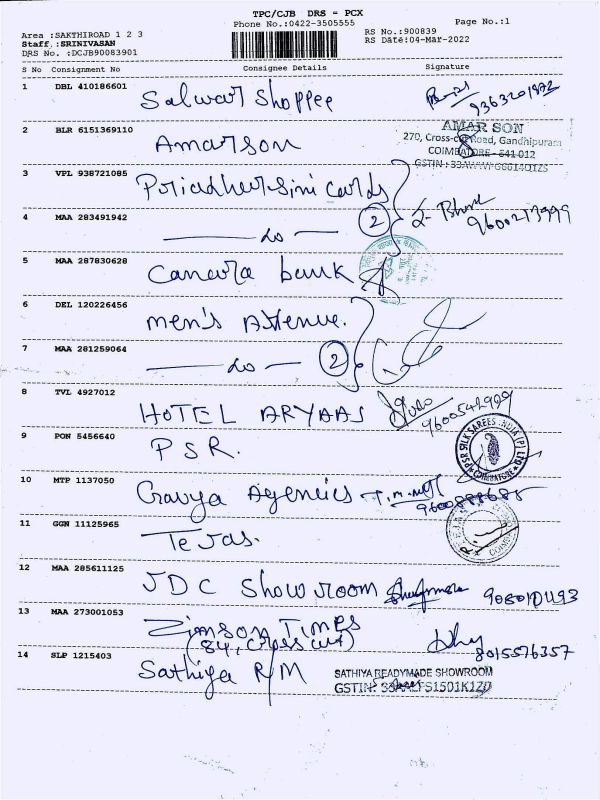 TPC/CJB DRS - PCX
Phone No.:0422-3505555
Page No.:1
Area :SAKTHIROAD 1 2 3
Staff.:SRINIVASAN
DRS No. :DCJB90083901
RS No.:900839
RS Date:04-Mar-2022
S No Consignment No Consignee Details Signature
1 DBL 410186601 Salwar Shoppee
2 BLR 6151369110 Amarson
AMAR SON
270, Cross-cut Road, Gandhipuram
COIMBATORE - 641 012
GSTIN :
3 VPL 938721085 Priiadharsini Cards
4 MAA 283491942 do 2
5 MAA 287830628 Canara bank
6 DEL 120226456 men's Avenue.
7 MAA 281259064 do 2
8 TVL 4927012 HOTEL ARYAAS
9600542999
9 PON 5456640 PSR.
PSR SILK SAREES INDIA (P) LTD
COIMBATORE
10 MTP 1137050 Gavya Agencies
11 GGN 11125965 Tejas.
12 MAA 285611125 JDC Showroom
13 MAA 273001053 Zimson Times
(84, Cross cut)
8015576357
14 SLP 1215403 Sathiya R/M
SATHIYA READYMADE SHOWROOM
GSTIN: